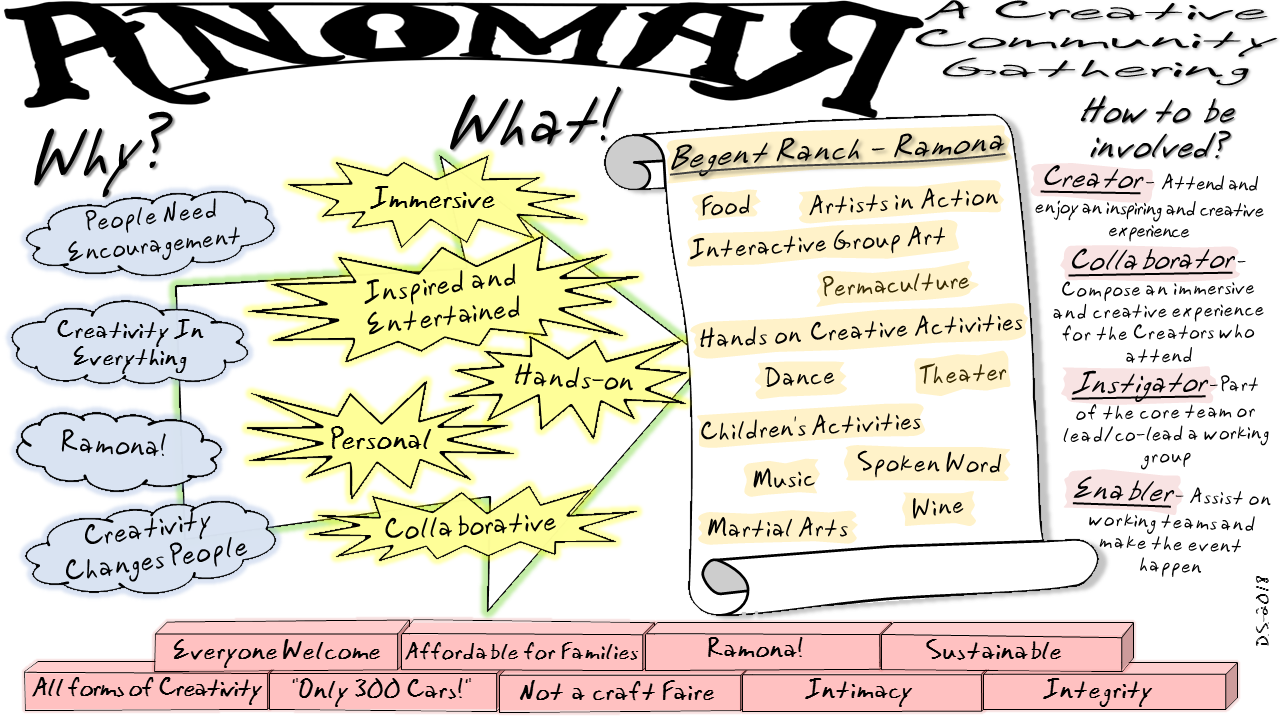 ANOMAR
A Creative
Community
Gathering
Why?
People Need
Encouragement
Creativity In
Everything
Ramona!
Creativity
Changes People
What!
Immersive
Inspired and
Entertained
Hands-on
Personal
Collaborative
Begent Ranch - Ramona
Food
Artists in Action
Interactive Group Art
Permaculture
Hands on Creative Activities
Dance
Theater
Children's Activities
Music
Spoken Word
Wine
Martial Arts
How to be
involved?
Creator- Attend and
enjoy an inspiring and creative
experience
Collaborator-
Compose an immersive
and creative experience
for the Creators who
attend
Instigator-Part
of the core team or
lead/co-lead a working
group
Enabler- Assist on
working teams and
make the event
happen
DS-2018
Everyone Welcome
Affordable for Families
Ramona!
Sustainable
All forms of Creativity
"Only 300 Cars!"
Not a craft Faire
Intimacy
Integrity